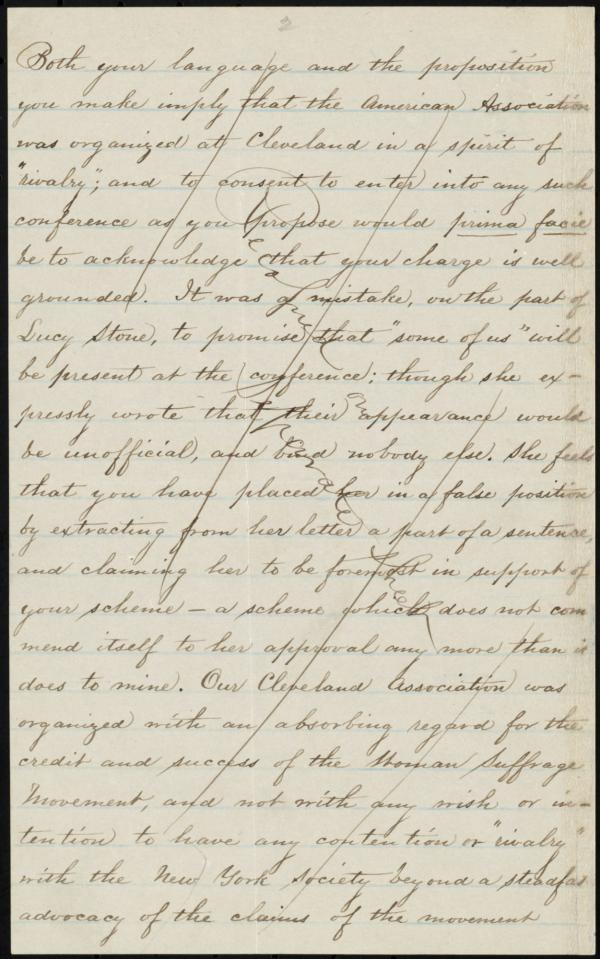 2
Both your language and the proposition
you make imply that the American Association
was organized at Cleveland in a spirit of
"rivalry"; and to consent to enter into any such
conference as you propose would prima facie
be to acknowledge that your charge is well
grounded. It was a mistake, on the part of
Lucy Stone, to promise that "some of us" will
be present at the conference; though she ex-
pressly wrote that their appearance would
be unofficial, and bind nobody else. She feels
that you have placed her in a false position
by extracting from her letter a part of a sentence,
and claiming her to be foremost in support of
your scheme – a scheme which does not com
mend itself to her approval any more than it
does to mine. Our Cleveland Association was
organized with an absorbing regard for the
credit and success of the Woman Suffrage
Movement, and not with any wish or in-
tention to have any contention or "rivalry"
with the New York Society beyond a steadfast
advocacy of the claims of the movement